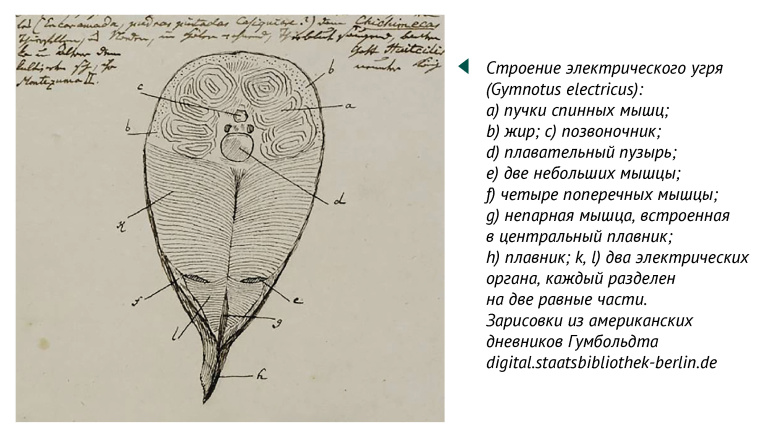 Chichimeca
Montezuma II.
c
b
a
b
d
k
f
e
l
g
h
Строение электрического угря
(Gymnotus electricus):
a) пучки спинных мышц;
b) жир; c) позвоночник;
d) плавательный пузырь;
e) две небольших мышцы;
f) четыре поперечных мышцы;
g) непарная мышца, встроенная
в центральный плавник;
h) плавник; k, l) два электрических
органа, каждый разделен
на две равные части.
Зарисовки из американских
дневников Гумбольдта
digital.staatsbibliothek-berlin.de